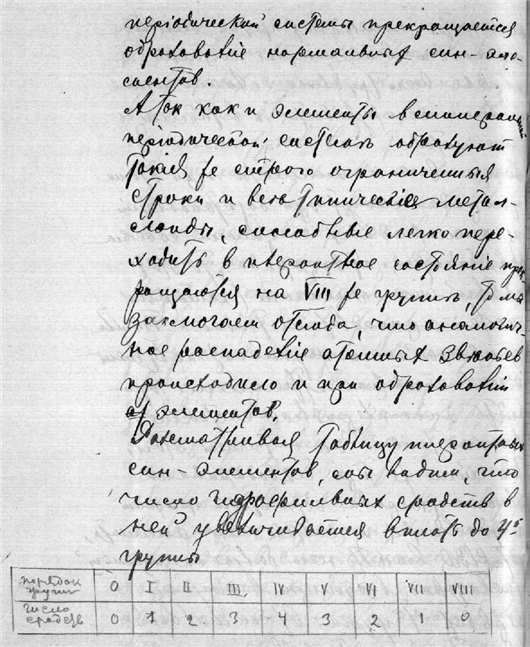 періодической системы прекращается
образованіе нормальных син-эле-
ментов.
А так как и элементы в минеральной
періодической системѣ образуют
такія же строго ограниченныя
строки и всѣ типическіе метал-
лоиды, способные легко пере-
ходить в инертное состояніе пре-
кращаются на VIII же группѣ то мы
заключаем отсюда, что аналогич-
ное распаденіе атомных звеньев
происходило и при образованіи
элементов.
Разсматривая таблицу инертных
син-элементов, мы видим, что
число гидрофильных сродств в
ней увеличивается вплоть до 4й
группы
порядок групп 0 I II III IV V VI VII VIII
число сродств 0 1 2 3 4 3 2 1 0